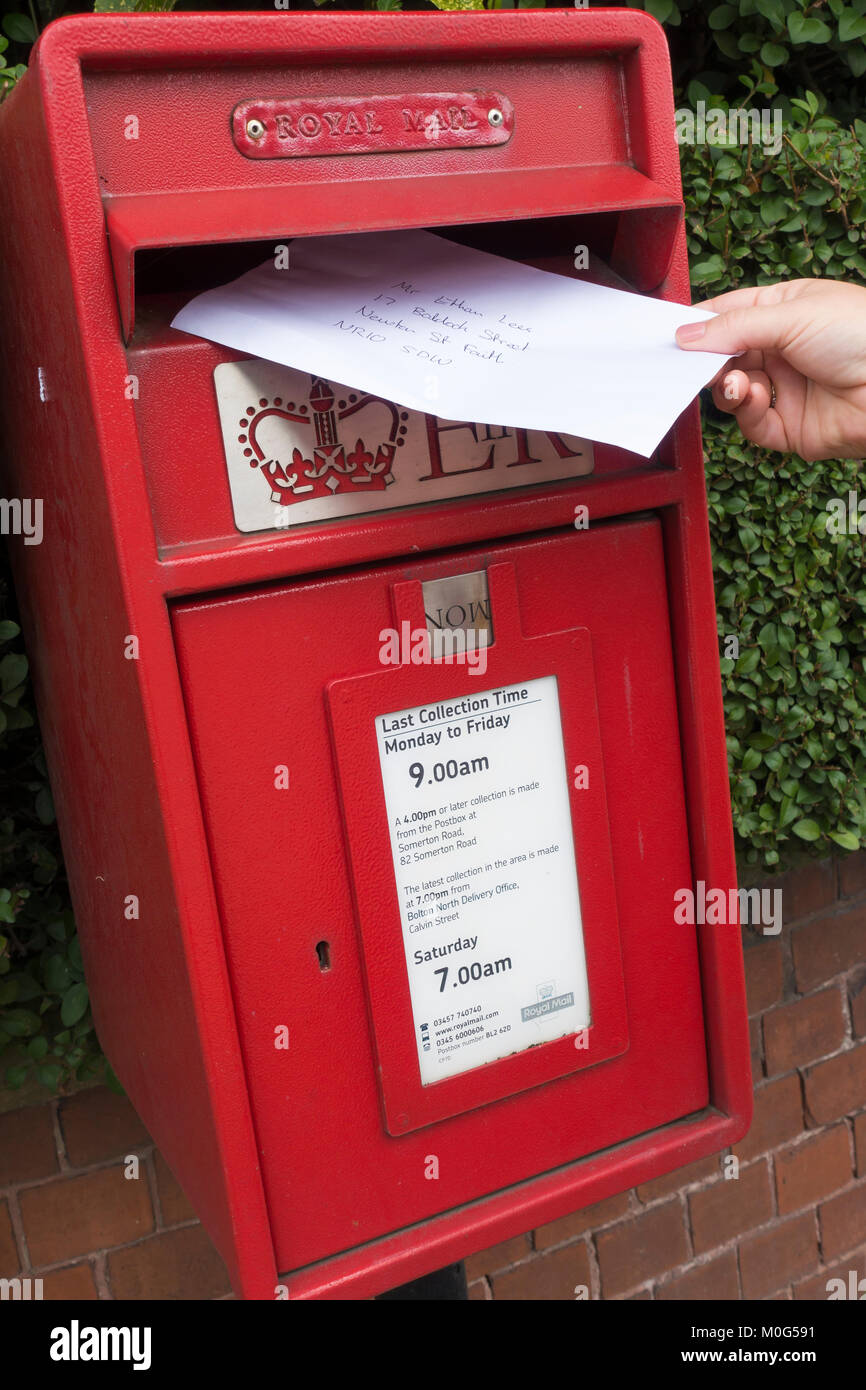 ROYAL MAIL
Mr Ethan Lee
17 Baldock Street
Newton St Faith
NR10 5DW
E II R
MON
Last Collection Time
Monday to Friday
9.00am
A 4.00pm or later collection is made
from the Postbox at
Somerton Road,
82 Somerton Road
The latest collection in the area is made
at 7.00pm from
Bolton North Delivery Office,
Calvin Street
Saturday
7.00am
03457 740740
www.royalmail.com
0345 6000606
Postbox number BL2 62D
CP7D
Royal Mail
alamy
a
Image ID: M0G591
www.alamy.com